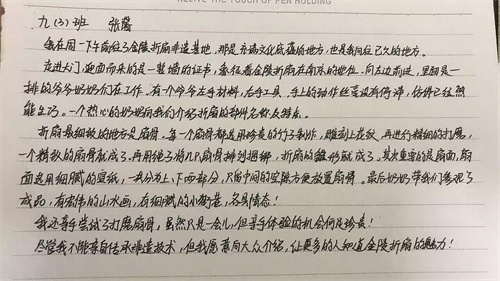 RELIVE THE TOUCH OF PEN HOLDING
九(3)班 张蔭
我在周一下午前往了金陵折扇非遗基地,那是充满文化底蕴的地方,也是我向往已久的地方。
走进大门,迎面而来的是一整墙的证书,象征着金陵折扇在南京的地位。向左边前进,里头是一
排的爷爷奶奶们在工作。有一个爷爷左手材料,右手工具,手上的动作丝毫没有停滞,仿佛已经熟
能生巧。一个热心的奶奶向我们介绍折扇的部件名称及特点。
折扇最细致的地方是扇骨。每一个扇骨都选用珍贵的竹子制作,雕刻上花纹,再进行精细的打磨,
一个精致的扇骨就成了。再用绳子将几只扇骨排列捆绑,折扇的雏形就成了。其次重要的是扇面,扇
面选用细腻的宣纸,一纸分为上、下两部分,只留中间的空隙方便放置扇骨。最后奶奶带我们参观了
成品,有宏伟的山水画,有细腻的小街巷,各具情态!
我还亲手尝试了打磨扇骨,虽然只是一会儿,但亲手体验的机会何其珍贵!
尽管我不能亲自传承非遗技术,但我愿意向大众介绍,让更多的人知道金陵折扇的魅力!